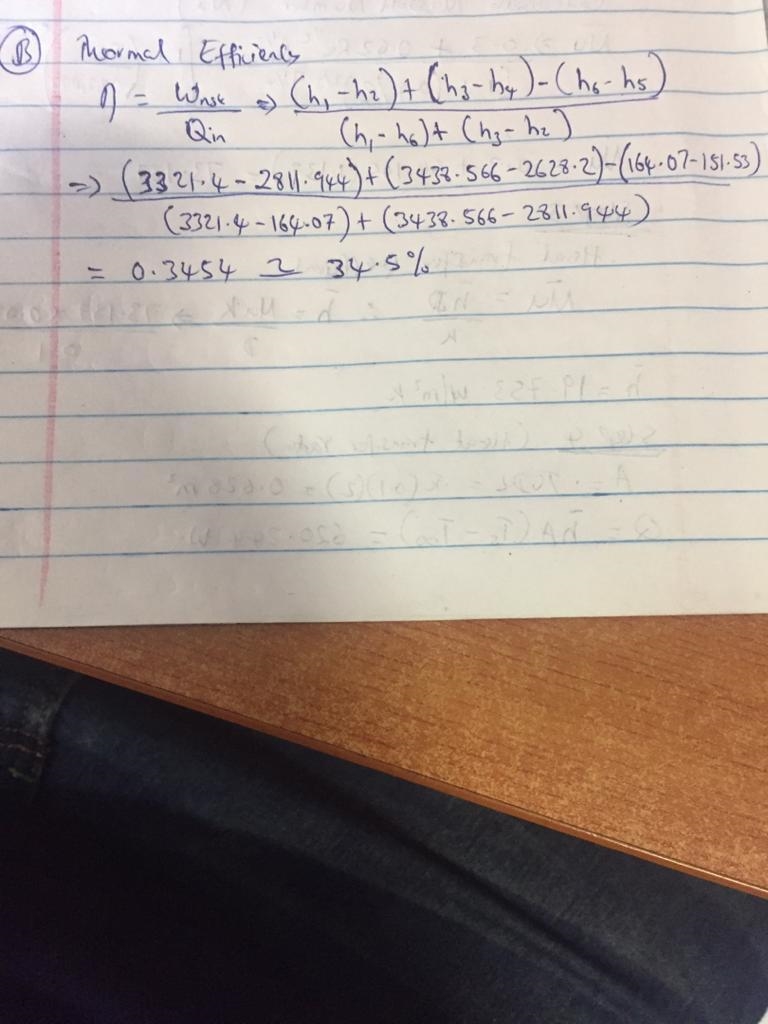 B Thermal Efficiency
η = Wnet / Qin => (h₁-h₂)+(h₃-h₄)-(h₆-h₅) / (h₁-h₆)+(h₃-h₂)
=> (3321.4-2811.944)+(3438.566-2628.2)-(164.07-151.53) / (3321.4-164.07)+(3438.566-2811.944)
= 0.3454 ≃ 34.5%